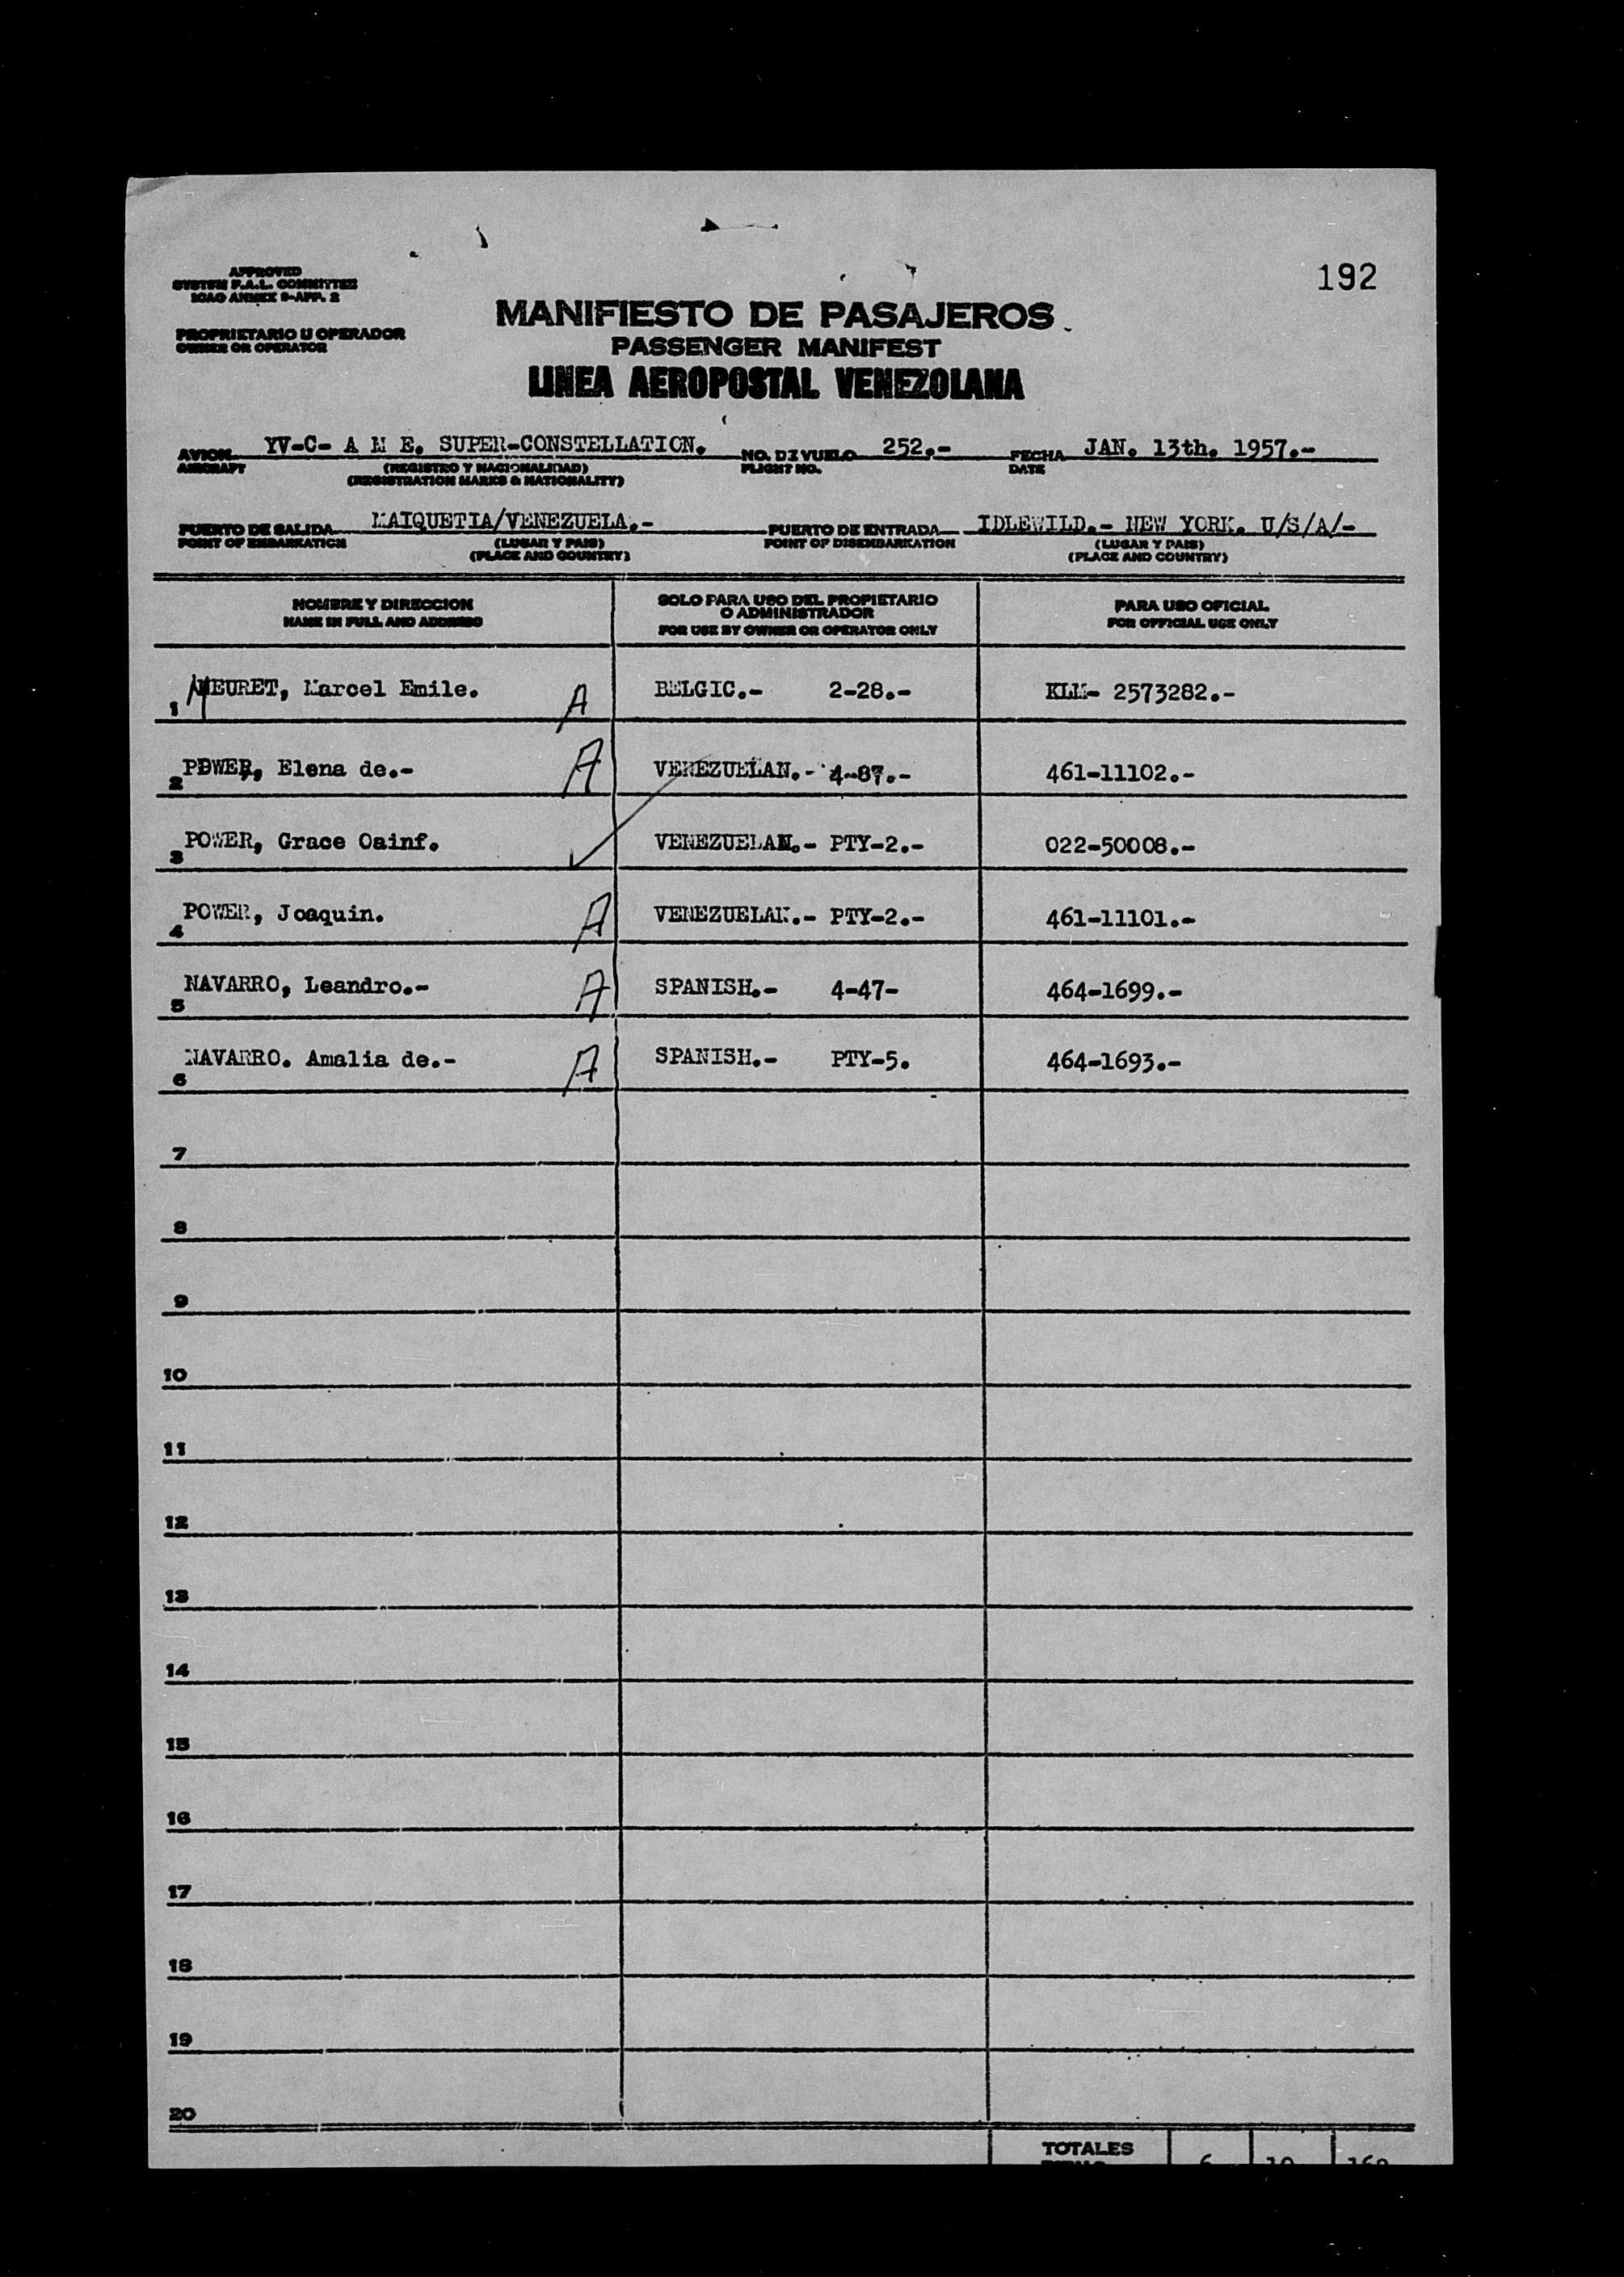 192
APPROVED
SYSTEM F.A.L. COMMITTEE
ICAO ANNEX 9-APP. 2
MANIFIESTO DE PASAJEROS
PROPRIETARIO U OPERADOR
OWNER OR OPERATOR
PASSENGER MANIFEST
LINEA AEROPOSTAL VENEZOLANA
AVION YV-C- A M E. SUPER-CONSTELLATION. NO. DE VUELO 252.- FECHA JAN. 13th. 1957.-
AIRCRAFT (REGISTRO Y NACIONALIDAD) FLIGHT NO. DATE
(REGISTRATION MARKS & NATIONALITY)
PUERTO DE SALIDA MAIQUETIA/VENEZUELA.- PUERTO DE ENTRADA IDLEWILD.- NEW YORK. U/S/A/-
POINT OF EMBARKATION (LUGAR Y PAIS) POINT OF DISEMBARKATION (LUGAR Y PAIS)
(PLACE AND COUNTRY) (PLACE AND COUNTRY)
NOMBRE Y DIRECCION
NAME IN FULL AND ADDRESS
SOLO PARA USO DEL PROPIETARIO
O ADMINISTRADOR
FOR USE BY OWNER OR OPERATOR ONLY
PARA USO OFICIAL
FOR OFFICIAL USE ONLY
1 MEURET, Marcel Emile. A BELGIC.- 2-28.- KLM- 2573282.-
2 POWER, Elena de.- A VENEZUELAN.- 4-87.- 461-11102.-
3 POWER, Grace Oainf. VENEZUELAN.- PTY-2.- 022-50008.-
4 POWER, Joaquin. A VENEZUELAN.- PTY-2.- 461-11101.-
5 NAVARRO, Leandro.- A SPANISH.- 4-47- 464-1699.-
6 NAVARRO. Amalia de.- A SPANISH.- PTY-5. 464-1693.-
7
8
9
10
11
12
13
14
15
16
17
18
19
20
TOTALES